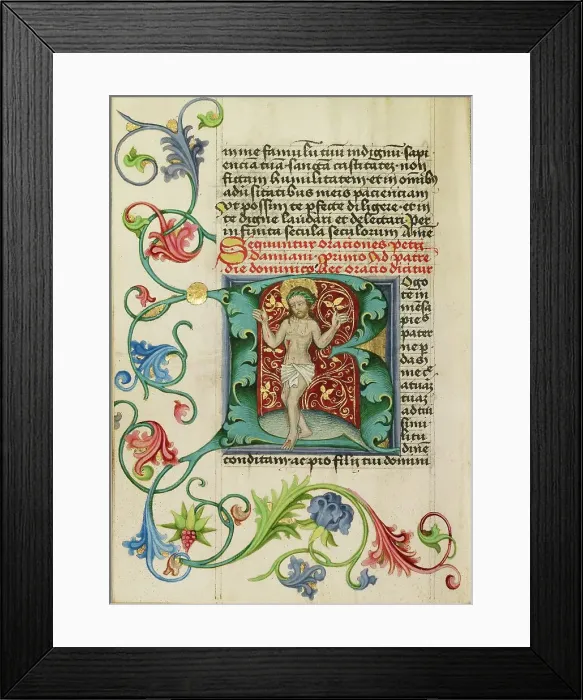 anime famulū tuū indignū sapi
encia tua sancta castitatez non
fictam humilitatem et in omībꝫ
adūsitatibus meis pacienciam
Vt possim te pfecte diligere et in
te digne laudari et delectari Per
infinita secula seculorum Ame
Sequuntur oraciones petri
damiani Primo Ad patrē
die dominico Hec oracio dicitur
Rogo
te in
mēsa
pies
pater
ne p
das
me cͣ
atuaꝫ
tuaꝫ
ad tui
sinu
situ
dine
conditam ac pro filii tui domini